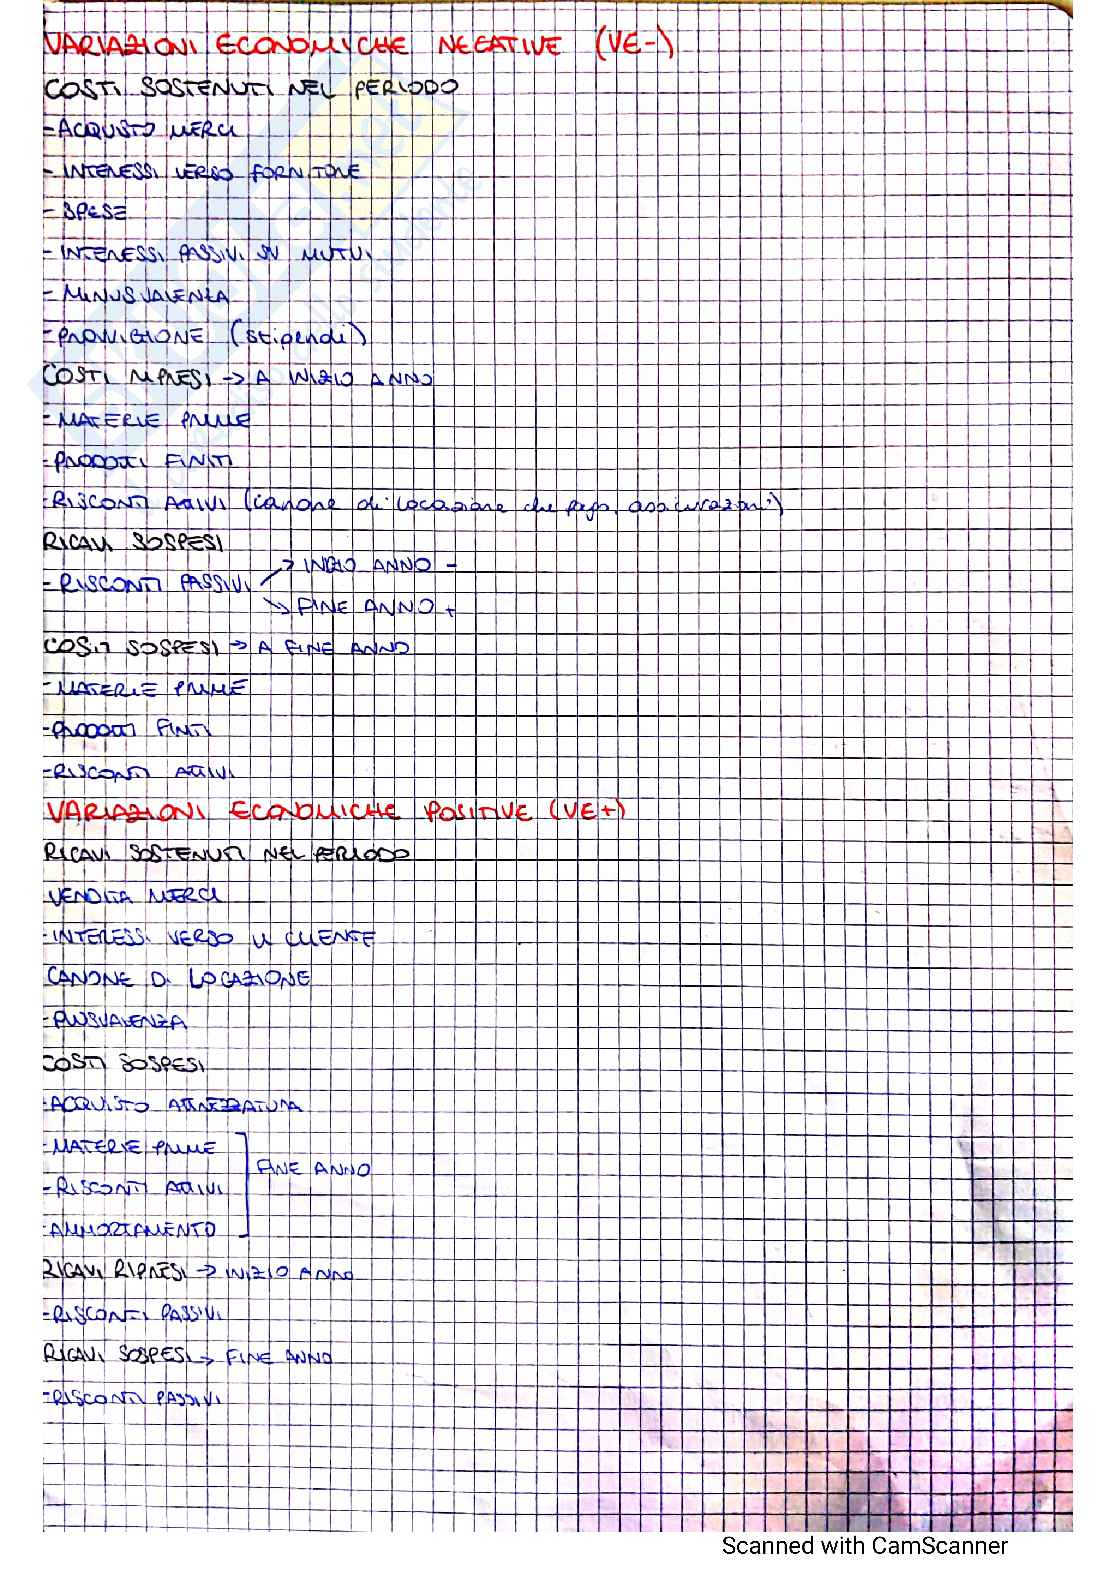 VARIAZIONI ECONOMICHE NEGATIVE (VE-)
COSTI SOSTENUTI NEL PERIODO
- ACQUISTO MERCI
- INTERESSI VERSO FORNITORE
- SPESE
- INTERESSI PASSIVI SU MUTUI
- MINUSVALENZA
- PROVVIGIONE (stipendi)
COSTI RIPRESI -> A INIZIO ANNO
- MATERIE PRIME
- PRODOTTI FINITI
- RISCONTI ATTIVI (canone di locazione che pago, assicurazioni)
RICAVI SOSPESI
-> INIZIO ANNO -
- RISCONTI PASSIVI
-> FINE ANNO +
COSTI SOSPESI -> A FINE ANNO
- MATERIE PRIME
- PRODOTTI FINITI
- RISCONTI ATTIVI
VARIAZIONI ECONOMICHE POSITIVE (VE+)
RICAVI SOSTENUTI NEL PERIODO
VENDITA MERCI
- INTERESSI VERSO IL CLIENTE
CANONE DI LOCAZIONE
- PLUSVALENZA
COSTI SOSPESI
- ACQUISTO ATTREZZATURA
- MATERIE PRIME
FINE ANNO
- RISCONTI ATTIVI
- AMMORTAMENTO
RICAVI RIPRESI -> INIZIO ANNO
- RISCONTI PASSIVI
RICAVI SOSPESI -> FINE ANNO
- RISCONTI PASSIVI
Scanned with CamScanner